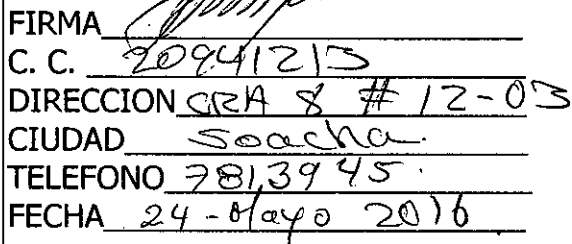 FIRMA
C. C. 20941213
DIRECCION CRA 8 # 12-03
CIUDAD Soacha.
TELEFONO 7813945.
FECHA 24-Mayo 2016